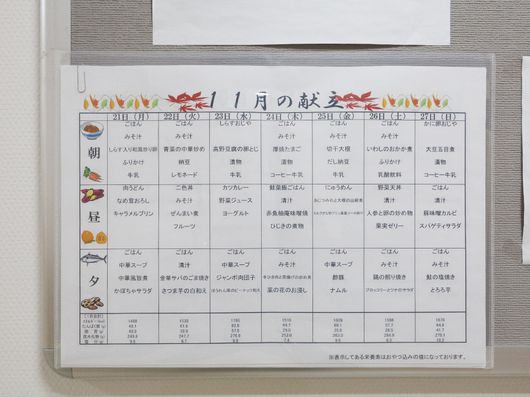 11月の献立
21日（月） 22日（火） 23日（水） 24日（木） 25日（金） 26日（土） 27日（日）
朝
ごはん ごはん しらすおじや ごはん ごはん ごはん かに卵おじや
みそ汁 みそ汁 みそ汁 みそ汁 みそ汁
しらす入り和風炒り卵 青菜の中華炒め 高野豆腐の卵とじ 厚焼たまご 切干大根 いわしのおかか煮 大豆五目煮
ふりかけ 納豆 漬物 漬物 だし納豆 ふりかけ 漬物
牛乳 レモネード 牛乳 コーヒー牛乳 牛乳 乳酸飲料 コーヒー牛乳
昼
肉うどん 二色丼 カツカレー 鮭菜飯ごはん にゅうめん 野菜天丼 ごはん
なめ茸おろし みそ汁 野菜ジュース 清汁 清汁 みそ汁
キャラメルプリン ぜんまい煮 ヨーグルト 赤魚柚庵味噌焼 人参と卵の炒め物 豚味噌カルビ
フルーツ ひじきの煮物 果実ゼリー スパゲティサラダ
夕
ごはん ごはん ごはん ごはん ごはん ごはん ごはん
中華スープ 清汁 中華スープ みそ汁 中華スープ みそ汁 みそ汁
中華風旨煮 金華サバのごま焼き ジャンボ肉団子 酢豚 鶏の照り焼き 鮭の塩焼き
かぼちゃサラダ さつま芋の白和え ほうれん草のピーナッツ和え 菜の花のお浸し ナムル ブロッコリーとツナのサラダ とろろ芋
※表示してある栄養表はおやつ込みの値になっております。